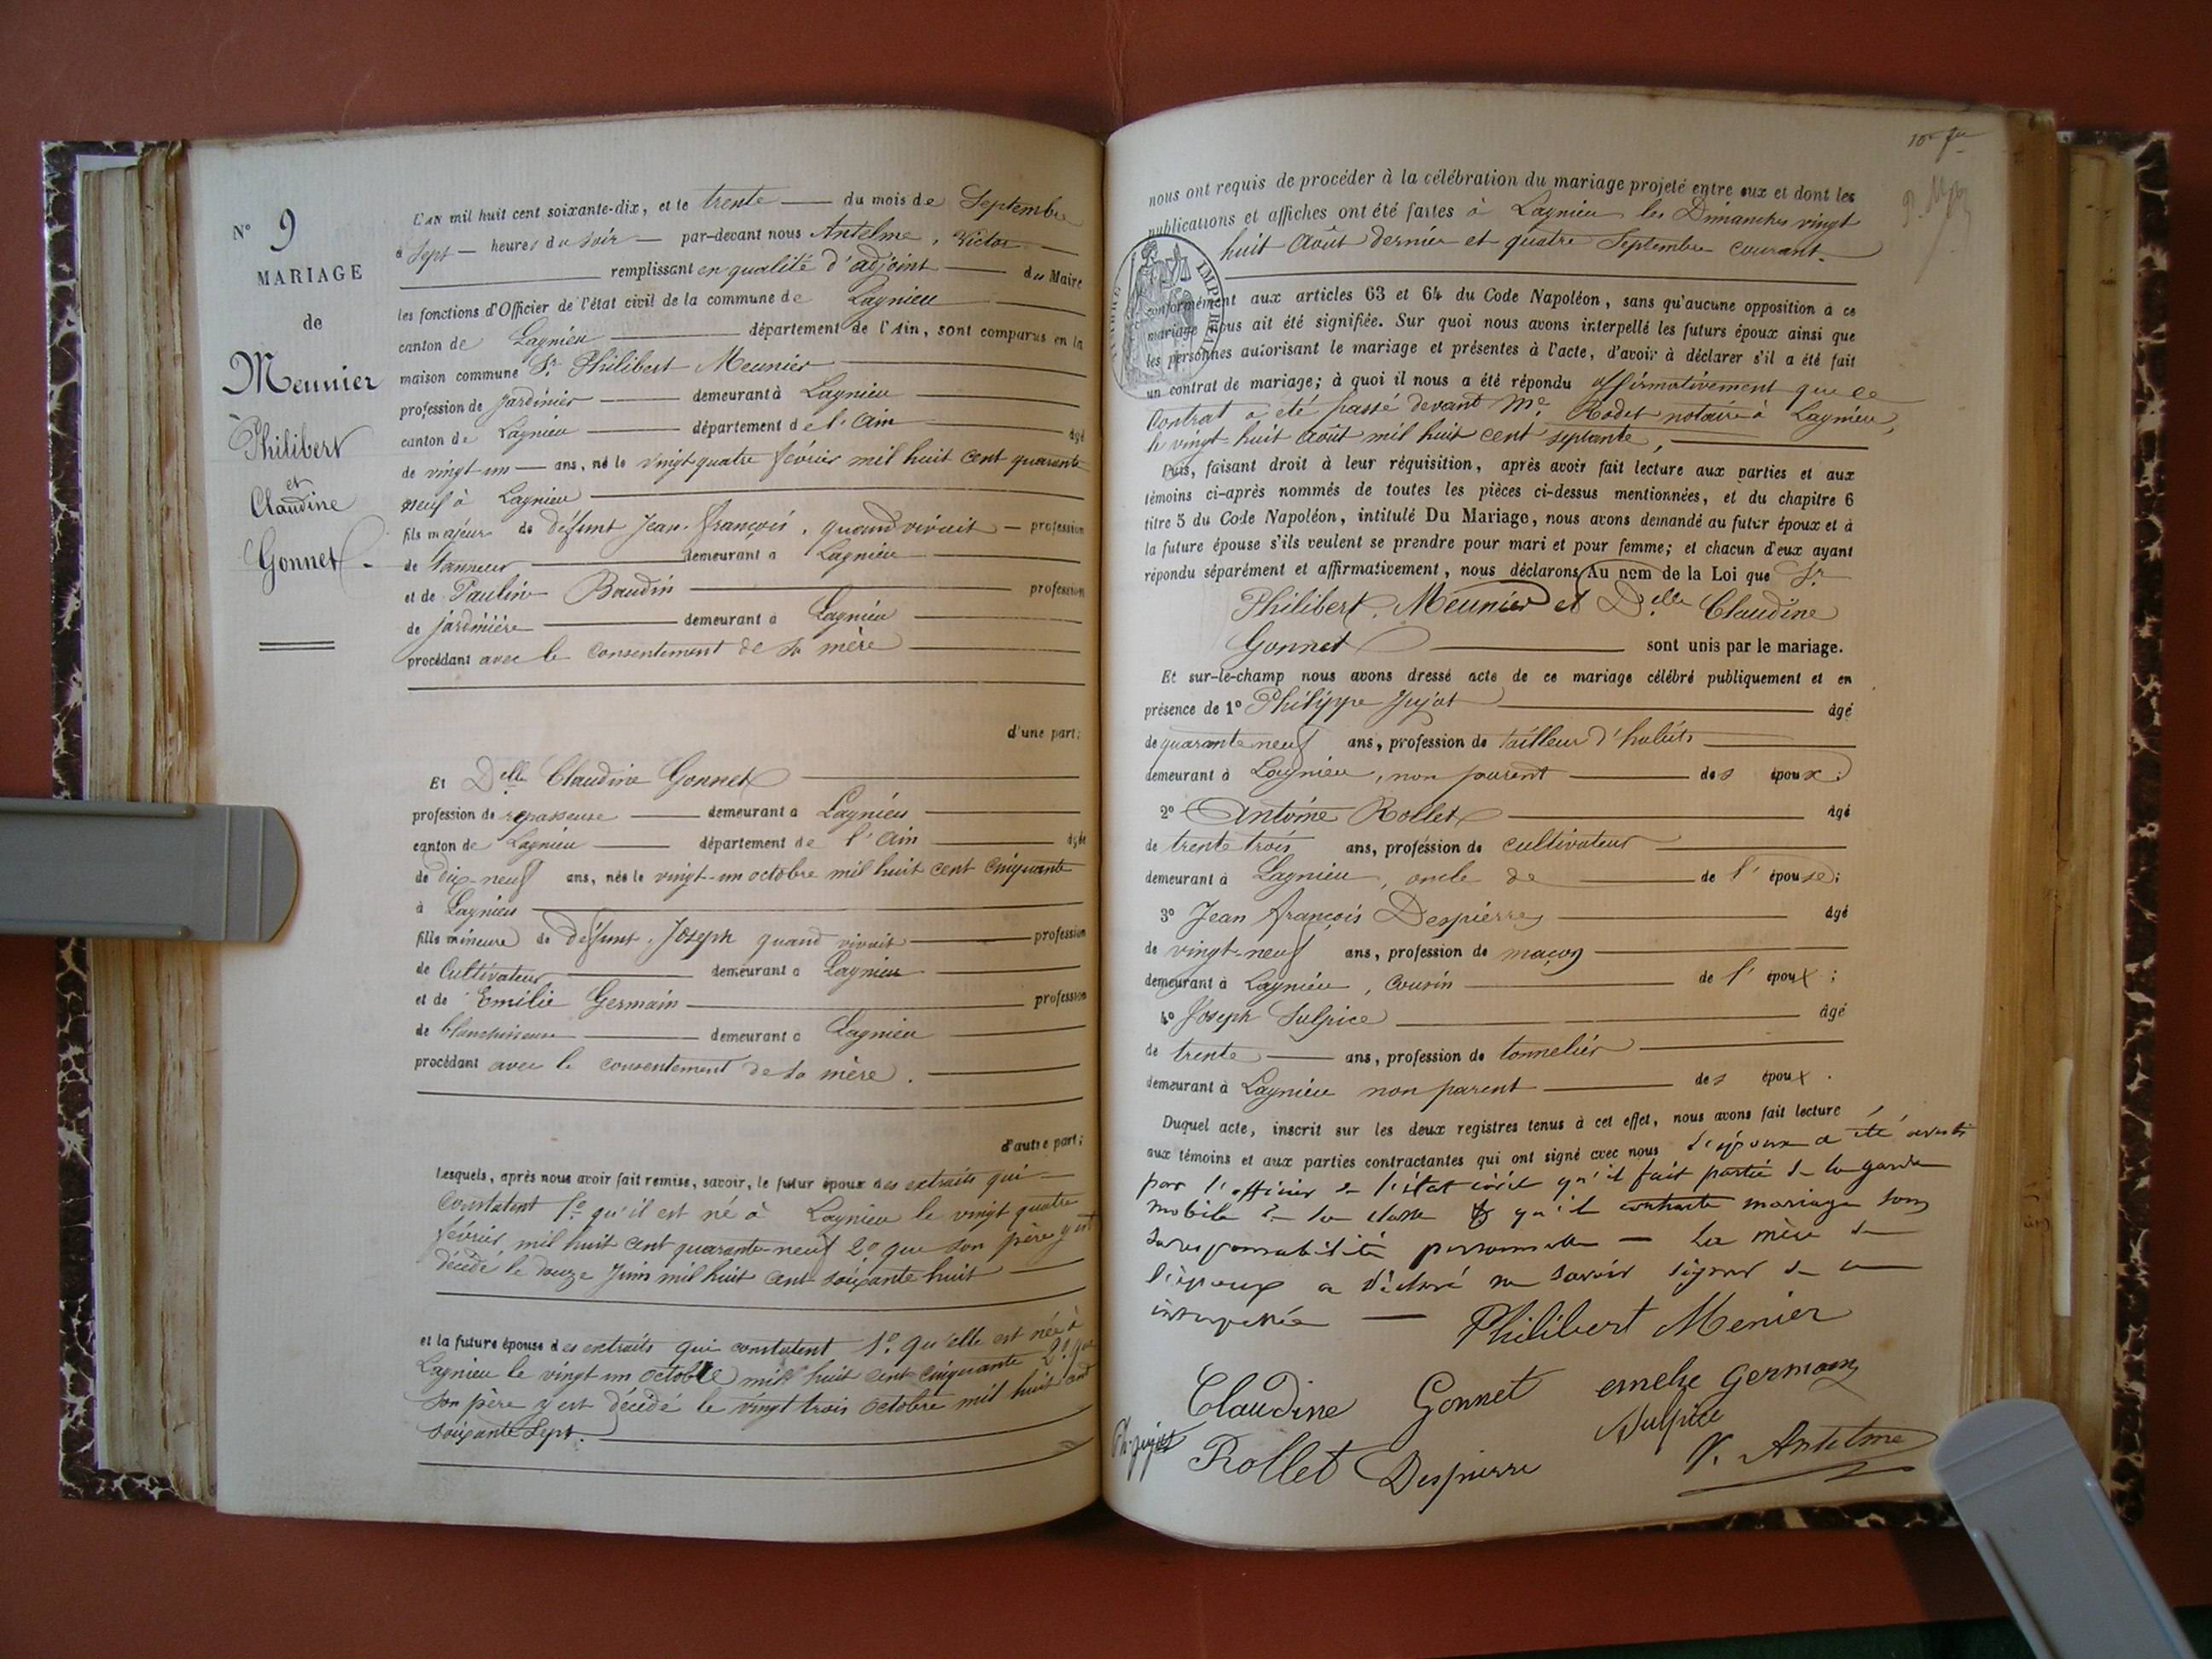 N° 9
MARIAGE
de
Meunier
Philibert
et
Claudine
Gonnet
L'AN mil huit cent soixante-dix, et le trente du mois de Septembre
à Sept heures du soir par-devant nous Antelme, Victor
remplissant en qualité d'adjoint du Maire
les fonctions d'Officier de l'état civil de la commune de Lagnieu
canton de Lagnieu département de l'Ain, sont comparus en la
maison commune Sr. Philibert Meunier
profession de jardinier demeurant à Lagnieu
canton de Lagnieu département de l'Ain âgé
de vingt-un ans, né le vingt quatre février mil huit cent quarante
neuf à Lagnieu
fils majeur de défunt Jean-François, quand vivait profession
de tanneur demeurant à Lagnieu
et de Pauline Baudin profession
de jardinière demeurant à Lagnieu
procédant avec le consentement de sa mère
d'une part;
Et Delle Claudine Gonnet
profession de repasseuse demeurant à Lagnieu
canton de Lagnieu département de l'Ain âgée
de dix-neuf ans, née le vingt-un octobre mil huit cent cinquante
à Lagnieu
fille mineure de défunt Joseph quand vivait profession
de Cultivateur demeurant à Lagnieu
et de Emilie Germain profession
de blanchisseuse demeurant à Lagnieu
procédant avec le consentement de sa mère.
d'autre part;
Lesquels, après nous avoir fait remise, savoir, le futur époux des extraits qui
constatent 1° qu'il est né à Lagnieu le vingt quatre
février mil huit cent quarante-neuf 2° que son père y est
décédé le douze Juin mil huit cent soixante huit
et la future épouse des extraits qui constatent 1° qu'elle est née à
Lagnieu le vingt un octobre mil huit cent cinquante 2° que
son père y est décédé le vingt trois octobre mil huit cent
soixante sept.
nous ont requis de procéder à la célébration du mariage projeté entre eux et dont les
publications et affiches ont été faites à Lagnieu les Dimanches vingt
huit Août dernier et quatre Septembre courant.
conformément aux articles 63 et 64 du Code Napoléon, sans qu'aucune opposition à ce
mariage nous ait été signifiée. Sur quoi nous avons interpellé les futurs époux ainsi que
les personnes autorisant le mariage et présentes à l'acte, d'avoir à déclarer s'il a été fait
un contrat de mariage; à quoi il nous a été répondu affirmativement que ce
Contrat a été passé devant Me. Rodet notaire à Lagnieu,
le vingt-huit août mil huit cent septante,
Puis, faisant droit à leur réquisition, après avoir fait lecture aux parties et aux
témoins ci-après nommés de toutes les pièces ci-dessus mentionnées, et du chapitre 6
titre 5 du Code Napoléon, intitulé Du Mariage, nous avons demandé au futur époux et à
la future épouse s'ils veulent se prendre pour mari et pour femme; et chacun d'eux ayant
répondu séparément et affirmativement, nous déclarons Au nom de la Loi que Sr
Philibert Meunier et Delle Claudine
Gonnet sont unis par le mariage.
Et sur-le-champ nous avons dressé acte de ce mariage célébré publiquement et en
présence de 1° Philippe Jujat âgé
de quarante neuf ans, profession de tailleur d'habits
demeurant à Lagnieu, non parent des époux;
2° Antoine Rollet âgé
de trente trois ans, profession de cultivateur
demeurant à Lagnieu, oncle de de l'épouse;
3° Jean François Despierres âgé
de vingt-neuf ans, profession de maçon
demeurant à Lagnieu, cousin de l'époux;
4° Joseph Sulpice âgé
de trente ans, profession de tonnelier
demeurant à Lagnieu non parent des époux.
Duquel acte, inscrit sur les deux registres tenus à cet effet, nous avons fait lecture
aux témoins et aux parties contractantes qui ont signé avec nous l'époux a été averti
par l'officier de l'état civil qu'il fait partie de la garde
mobile de sa classe & qu'il contracte mariage sous
sa responsabilité personnelle — La mère de
l'époux a déclaré ne savoir signer de ce
interpellée — Philibert Menier
Claudine Gonnet emelie germain
Sulpice
Ph. jujat Rollet Despierre V. Antelme